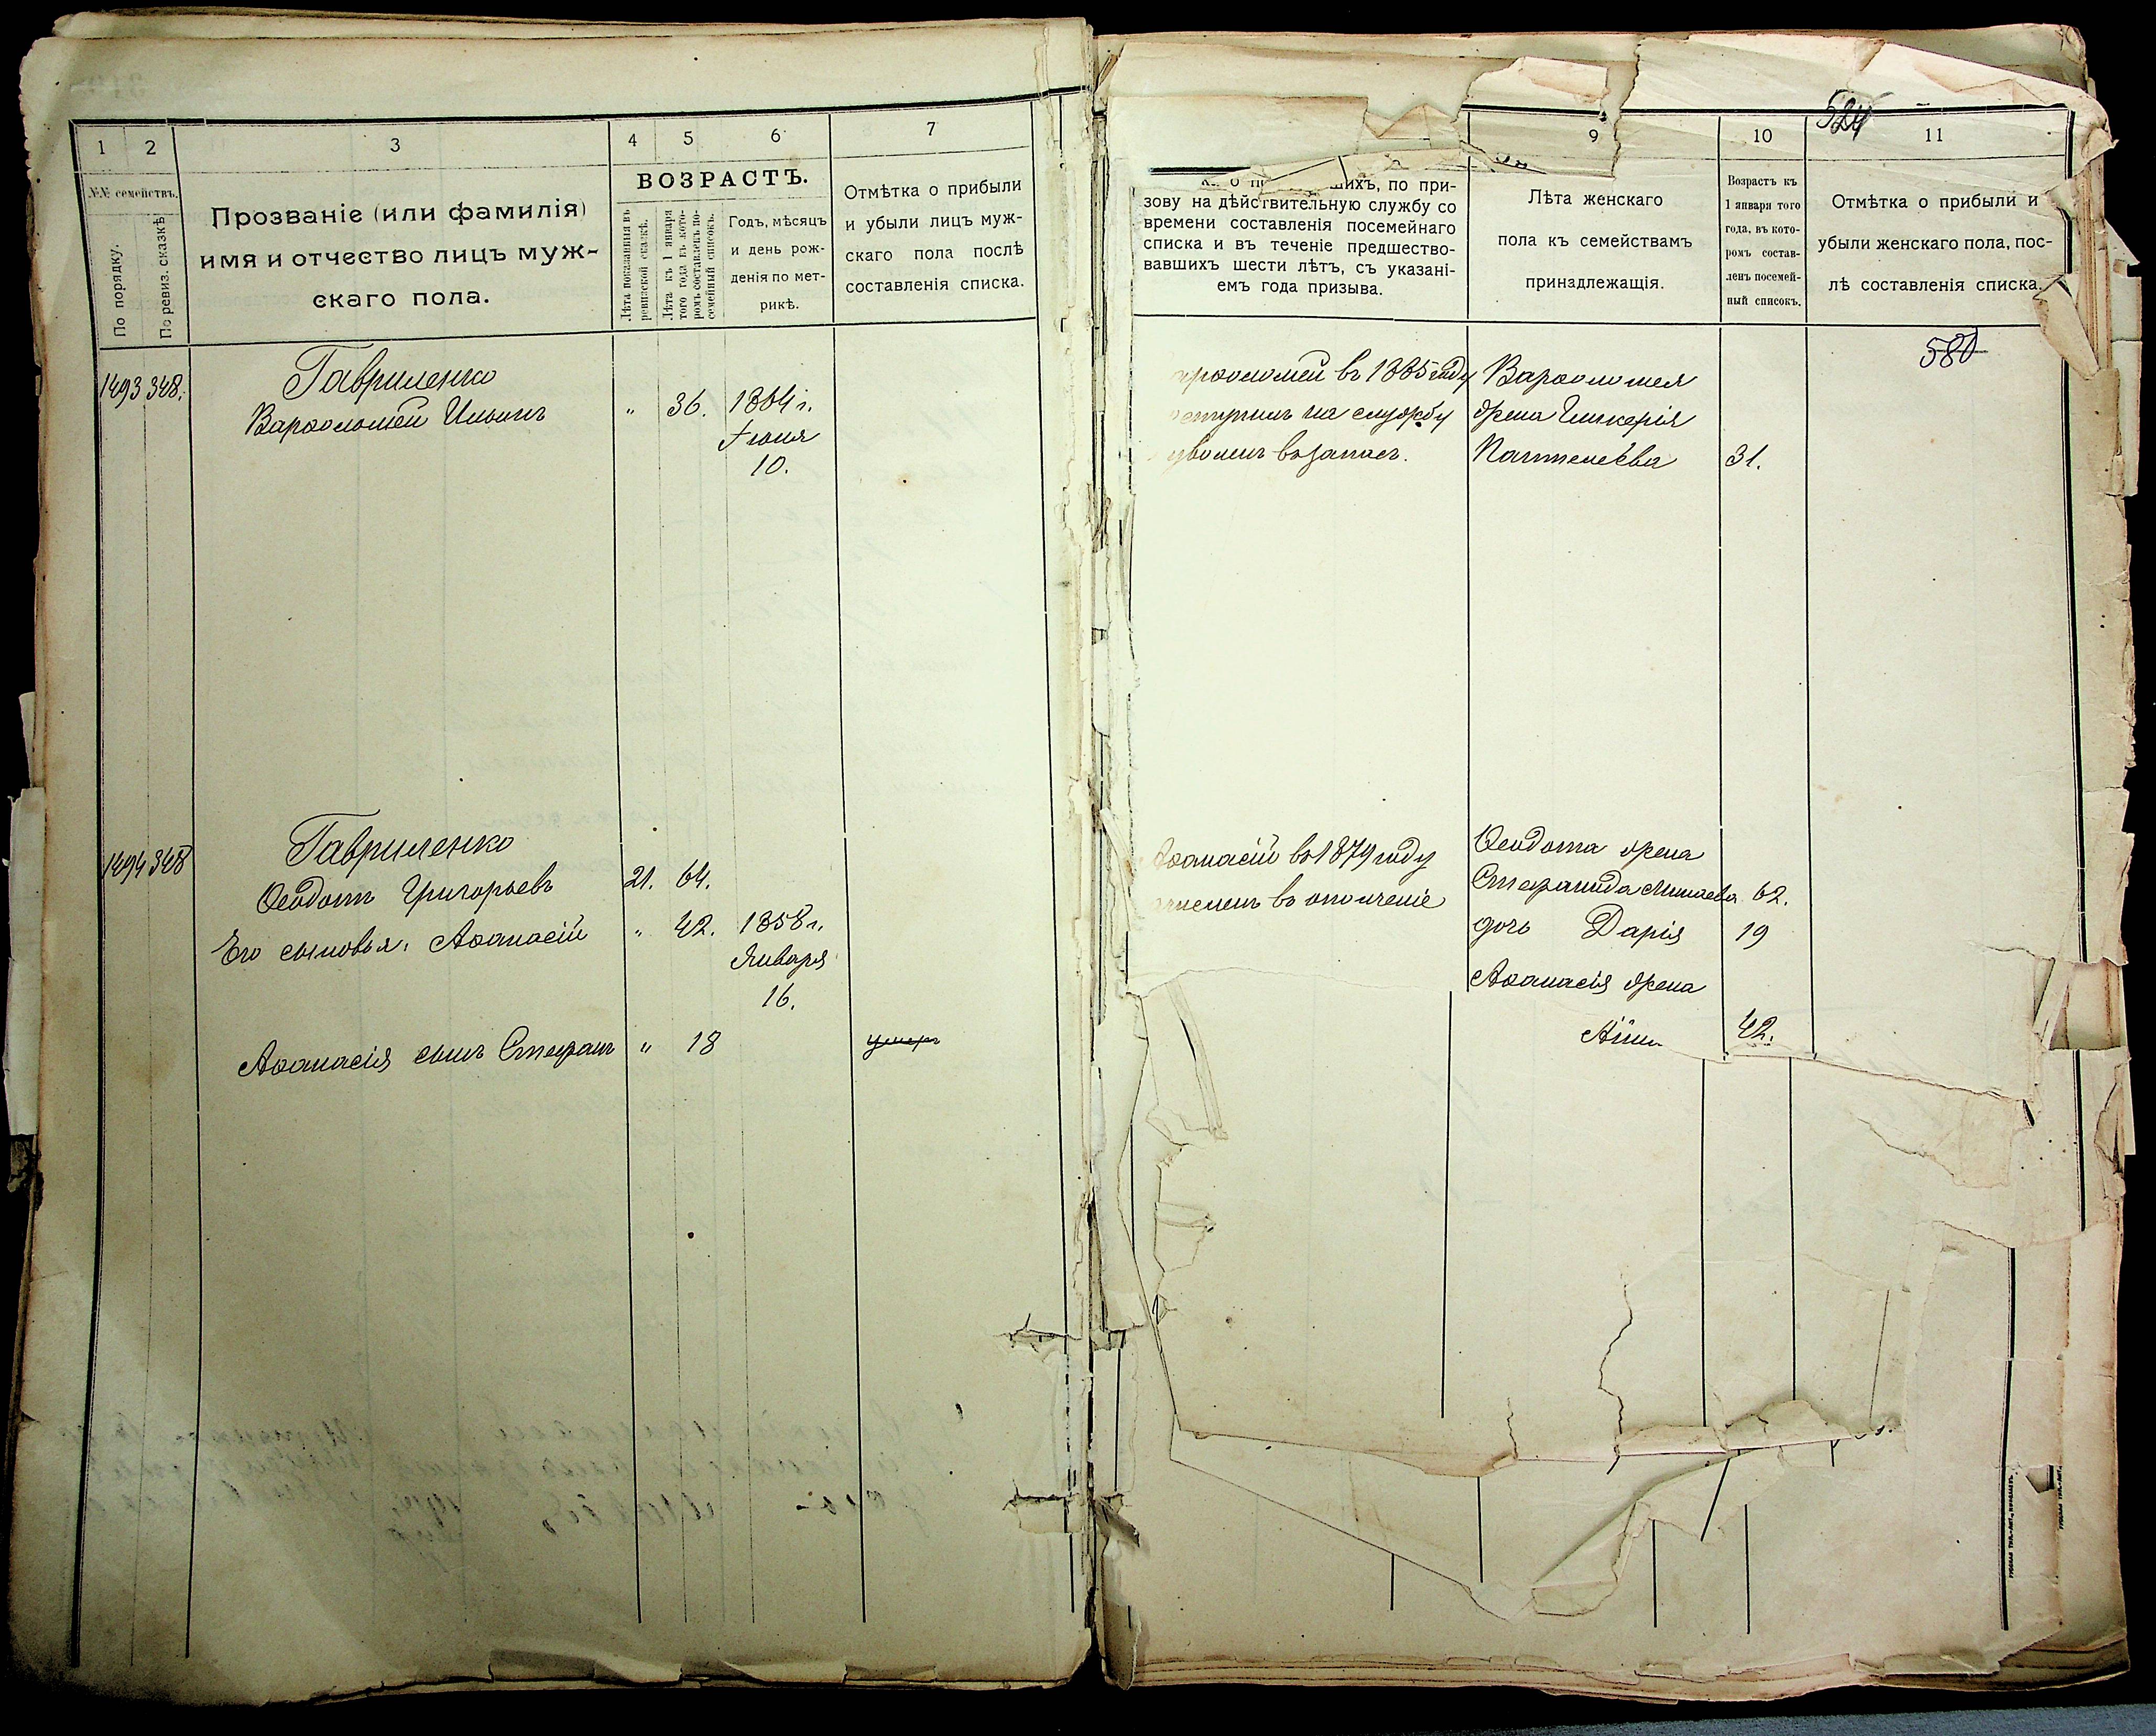 1 2 3 4 5 6 7
№№ семействъ.
По порядку.
По ревиз. сказкѣ
Прозваніе (или фамилія)
имя и отчество лицъ муж-
скаго пола.
ВОЗРАСТЪ.
Лѣта показанныя въ
ревизской сказкѣ.
Лѣта къ 1 января
того года въ кото-
ромъ составленъ по-
семейный списокъ.
Годъ, мѣсяцъ
и день рож-
денія по мет-
рикѣ.
Отмѣтка о прибыли
и убыли лицъ муж-
скаго пола послѣ
составленія списка.
1493 348.
Гавриленко
Варѳоломей Ильинъ " 36. 1864 г.
Іюня
10.
1494 348
Гавриленко
Ѳеодотъ Григорьевъ 21. 64.
Его сыновья: Аѳанасій " 42. 1858 г.
Января
16.
Аѳанасія сынъ Стефанъ " 18 умеръ
524
9 10 11
шихъ, по при-
зову на дѣйствительную службу со
времени составленія посемейнаго
списка и въ теченіе предшество-
вавшихъ шести лѣтъ, съ указані-
емъ года призыва.
Лѣта женскаго
пола къ семействамъ
принадлежащія.
Возрастъ къ
1 января того
года, въ кото-
ромъ состав-
ленъ посемей-
ный списокъ.
Отмѣтка о прибыли и
убыли женскаго пола, пос-
лѣ составленія списка.
580
арѳоломей въ 1885 году
на службу
уволенъ въ запасъ.
Варѳоломея
жена Гликерія
Пантелеева 31.
Аѳанасій въ 1879 году
въ ополченіе
Ѳеодота жена
Стефанида Минаева 62.
дочь Дарія 19
Аѳанасія жена
42.